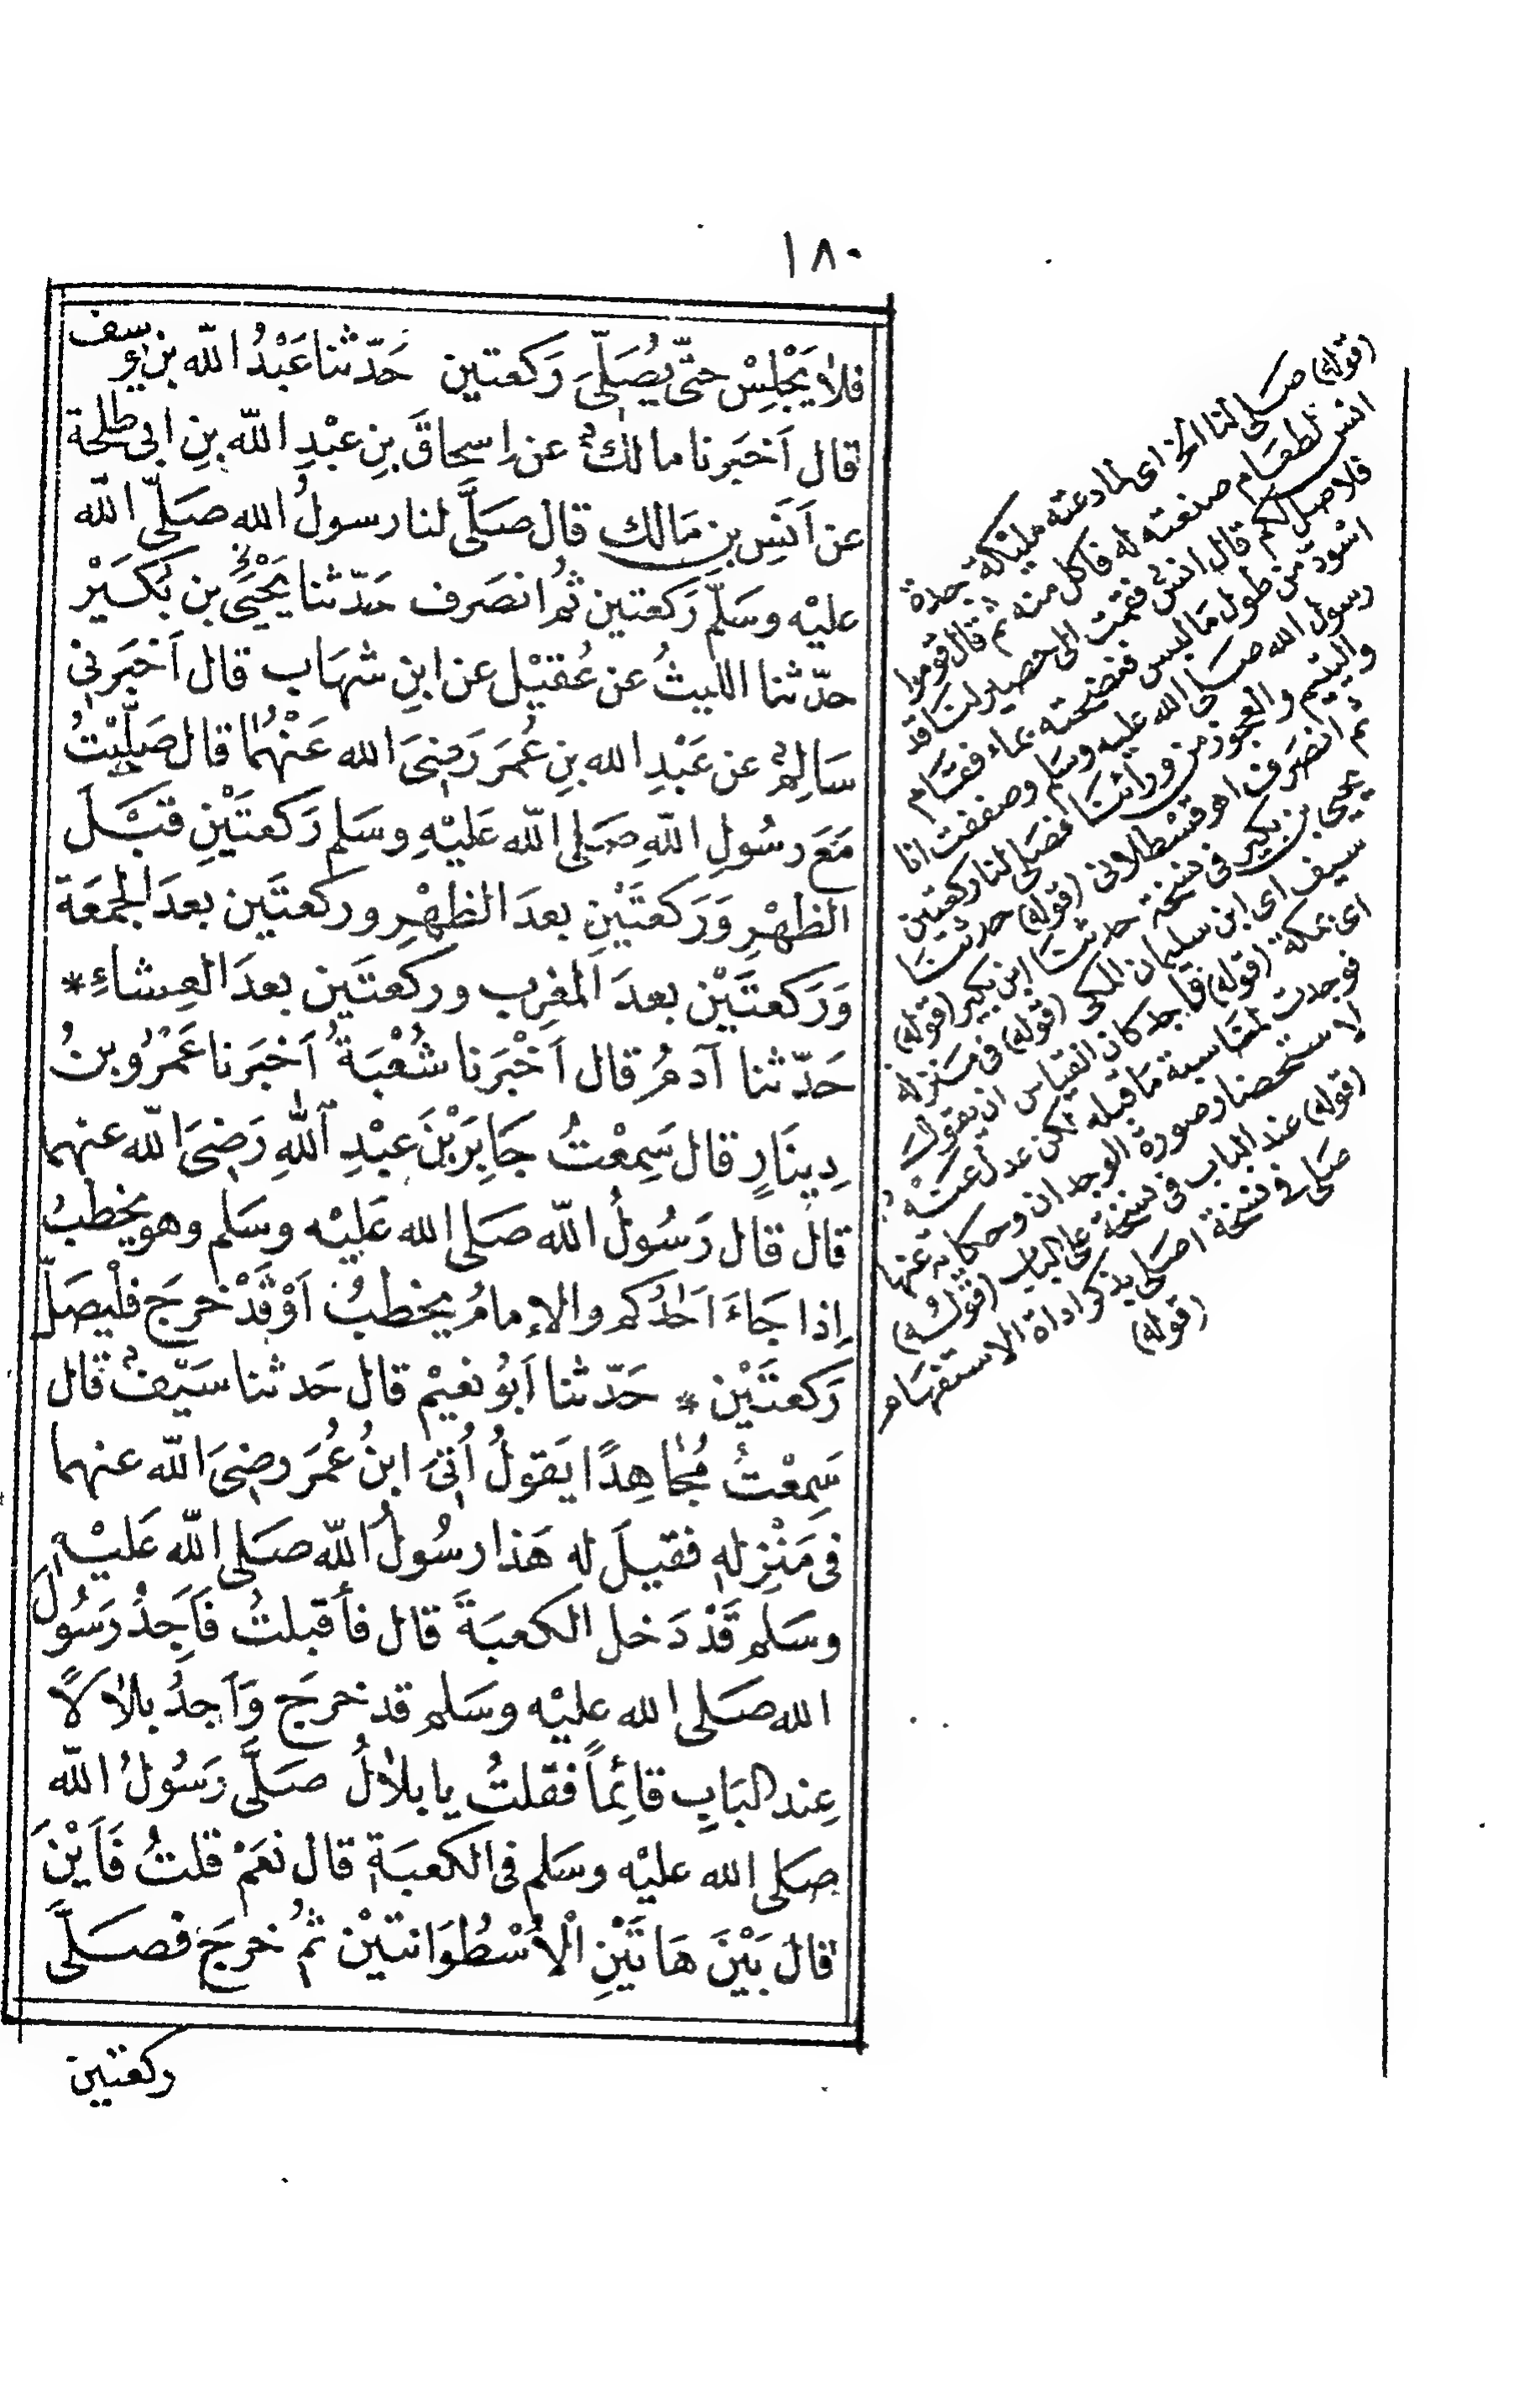 ١٨٠
فلا يَجْلِسْ حتّى يُصَلّىَ رَكعتين حَدّثنا عَبْدُ الله بن يوسف
قال اَخبَرنا مالكٌ عن اِسحاقَ بنِ عبْدِ اللّه بنِ ابى طلحة
عن اَنَسِ بنِ مَالك قال صَلَّى لنا رسولُ الله صَلّى اللّه
عليْه وسَلّم رَكعتين ثُم انصَرف حَدّثنا يَحْيَى بن بُكَيْر
حدّثنا الليثُ عن عُقَيْل عن ابنِ شهَاب قال اَخبَرنى
سَالِمٌ عن عَبْدِ الله بنِ عُمَر رَضىَ الله عَنْهُما قال صَلَّيْتُ
مَعَ رسُولِ اللّهِ صَلى اللّه عَليْهِ وسَلم رَكعتَيْنِ قَبْلَ
الظهْرِ وَرَكعتَيْنِ بعدَ الظهْرِ وركعتَين بعدَ الجمعَة
وَرَكعتَيْن بعدَ المغرب وركعتَين بعدَ العِشاءِ *
حَدّثنا آدمُ قال اَخْبَرنا شُعْبَةُ اَخبَرنا عَمْرُو بنُ
دِينَارٍ قال سَمِعْتُ جَابِرَ بْنَ عبْدِ اللهِ رَضىَ اللّه عنهما
قال قال رَسُولُ اللّه صَلى الله عَليْه وسَلم وهو يخطبُ
اِذا جَاءَ اَحَدُكم والإمامُ يخطبُ اَوْ قَدْ خرجَ فلْيصَلّ
رَكعتَيْن * حَدّثنا اَبُو نعيْم قال حَدثنا سَيْفٌ قال
سَمِعْتُ مُجَاهِدًا يَقولُ اُتىَ ابنُ عُمَر رضىَ اللّه عنهما
فى مَنْزِلهِ فقيلَ له هَذا رسُولُ اللّه صَلى اللّه عَليْهِ
وسَلم قَدْ دَخل الكعبَةَ قال فأقبلتُ فَاَجِدُ رَسُولَ
الله صَلى الله عليْه وسَلم قد خرجَ وَاَجِدُ بلالاً
عِند البَابِ قائِماً فقلتُ يا بلالُ صَلَّى رَسُولُ اللّه
صَلى الله عليْه وسَلم فى الكعبَةِ قال نعَمْ قلتُ فَاَيْنَ
قال بَيْنَ هَاتَيْنِ الْاُسْطُوَانتيْن ثُمَّ خرجَ فصَلَّى
ركعتين
(قوله) صَلى لنا الخ اى لما دعته مليكة جدة
انس لطعَام صنعته له فأكل منه ثم قال قوموا
فلاصل لكم قال انس فقمت الى حصير لنَا قد
اسْودّ من طول مَا لبس فنضحته بماء فقَام
رسول الله صَلى الله عليه وسَلم وصففت انا
واليتيم والعجوز من ورائنَا فصَلى لنا ركعتين
ثم انصَرف اهو قسْطلانى (قوله) حدثنَا
يحيى بن بكير فى نسخة حدثنَا ابن بكير (قوله)
سيف اى ابن سليمان المكى (قوله) فى مَنزله
اى بمكة (قوله) فاجد كان القياس ان يقول
فوجدت لمنَاسبة مَا قبله لكن عدل عَنْه
لاستحضار صورة الوجدان وحكاية عنها
(قوله) عند الباب فى نسخة على الباب (قوله)
صَلى فى نسخة اصَلى بذكر اداة الاستفهَام
(قوله)